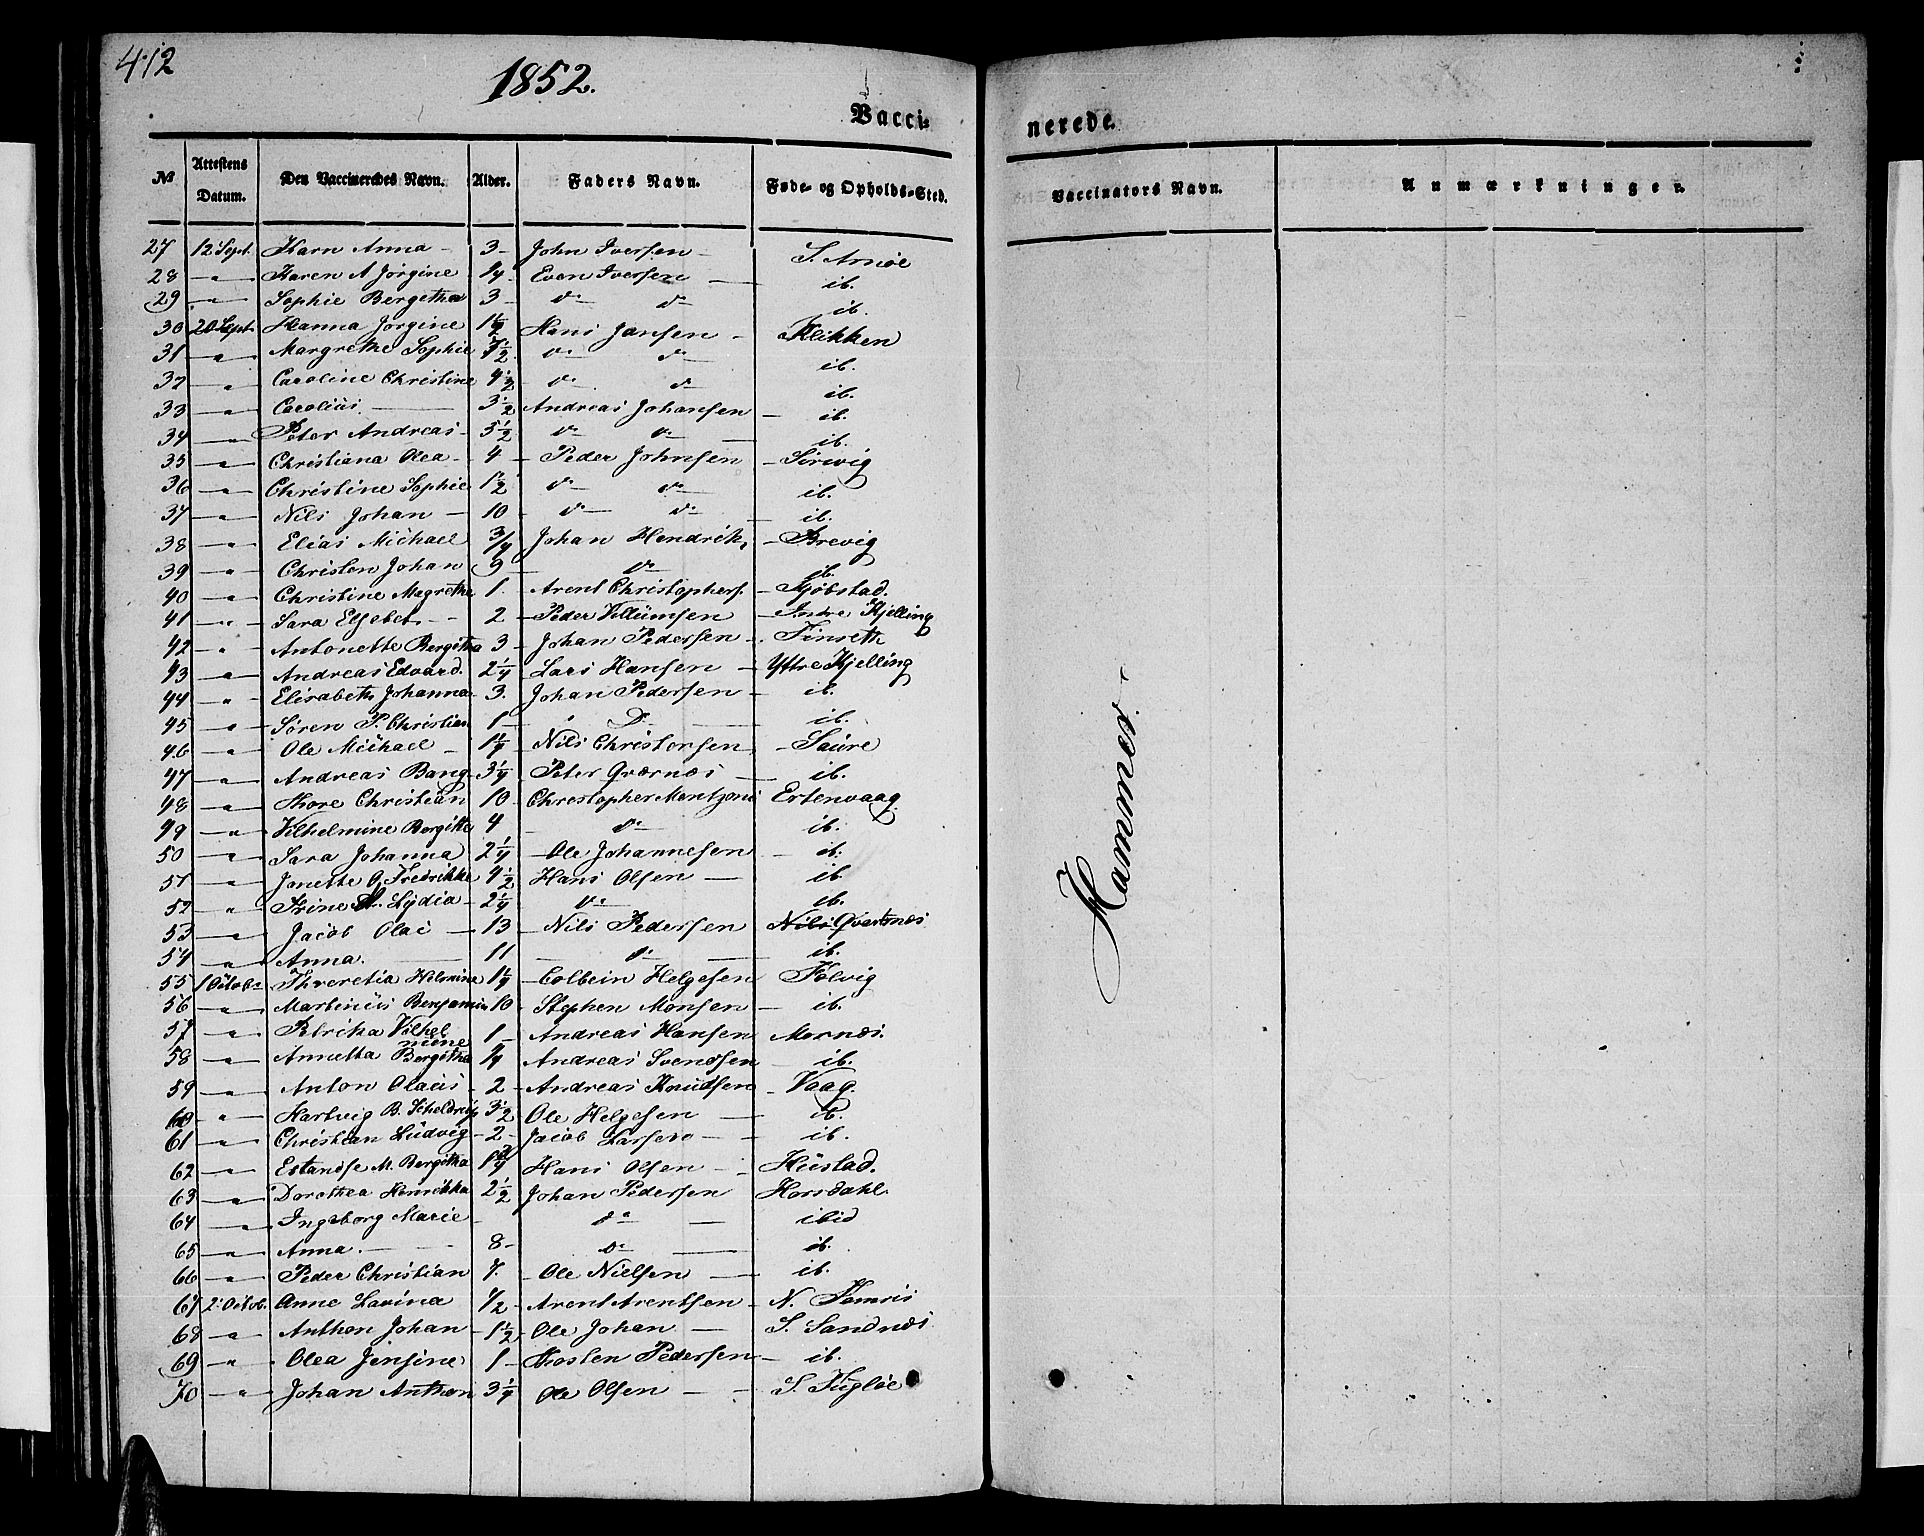 412
1852.
Vacci- nerede.
No Attestens Datum. Den Vaccineredes Navn. Alder. Faders Navn. Føde- og Opholds-Sted. Vaccinators Navn. Anmærkninger.
27 12 Sept. Karn Anna - 3 - John Iversen - S. Arnöe
28 " Karen A Jörgine 1/4 - Even Iversen - ib.
29 " Sophie Bergetha 3 - do do ib.
30 20 Sept. Hanna Jorgine 1 1/2 Hans Jansen - Klikken
31 " Margrethe Sophie 7 1/2 do do ib.
32 " Caroline Christine 4 1/2 do do ib.
33 " Carolius - 3 1/2 Andreas Johansen - ib.
34 " Peter Andreas - 5 1/2 do do - ib.
35 " Christiana Olea - 4 - Peder Johnsen - Sörvig
36 " Christine Sophie 1 1/2 do do ib.
37 " Nils Johan - 10 - do do - ib.
38 " Elias Michael 3/4 Johan Hendrik. - Brevig
39 " Christen Johan 9 - do ib.
40 " Christine Magrethe 1. Arent Christophers. - Kjöbstad.
41 " Sara Elsebet. - 2 - Peder Villumsen - Indre Kjelling
42 " Antonette Bergitha 3 - Johan Pedersen - Finseth
43 " Andreas Edvard. 2 1/4 - Lars Hansen - Yttre Kjelling
44 " Elisabeth Johanna - 3. Johan Pedersen - ib.
45 " Sören P. Christian 1 - Do - ib.
46 " Ole Michael - 1 1/4 - Nils Christensen - Saure
47 " Andreas Bang - 3 1/4 - Peter Qværnæs - ib.
48 " Thore Christian 10 - Christopher Mentzoni Ertenvaag
49 " Vilhelmine Bergitte 4 - do ib.
50 " Sara Johanna 2 1/4 - Ole Johannesen - ib.
51 " Janette G. Fredrikke 4 1/2 Hans Olsen - ib
52 " Trine M. Lydia - 2 1/4 - do ib.
53 " Jacob Olai - 13 - Nils Pedersen - Nils Qvartnæs
54 " Anna. - 11 - do ib.
55 1 Octobr Threretia Helmine 1 1/4 - Colbein Helgesen - Felvig
56 " Martinius Benjamin 10 - Stephen Monsen - ib.
57 " Ulrika Vilhelmine 1 - Andreas Hansen - Mornæs.
58 " Annetta Bergitha 1/4 - Andreas Svendsen - ib.
59 " Anton Olaus - 2 - Andreas Knudsen - Vaag.
60 " Hartvig B. Scheldrup 3 1/2 Ole Helgesen - ib.
61 " Christian Ludvig - 2 - Jacob Larsen - - ib.
62 " Estandse M. Bergitha 1 3/4 - Hans Olsen - Hustad.
63 " Dorothea Henrikka 2 1/2 Johan Pedersen Horsdahl.
64 " Ingeborg Marie - do - ibid
65 " Anna. - 8 - do - ib.
66 " Peder Christian 7. - Ole Nielsen - ib.
67 2 Octob. Anne Lavina 1/2 - Arent Arentsen - N.
68 " Anthon Johan - 1 1/2 - Ole Johan - S. Sandnæs
69 " Olea Jensine 1 - Thosten Pedersen - ib.
70 " Johan Anthon 3 1/4 - Ole Olsen - - S. Fugløe
Hammer